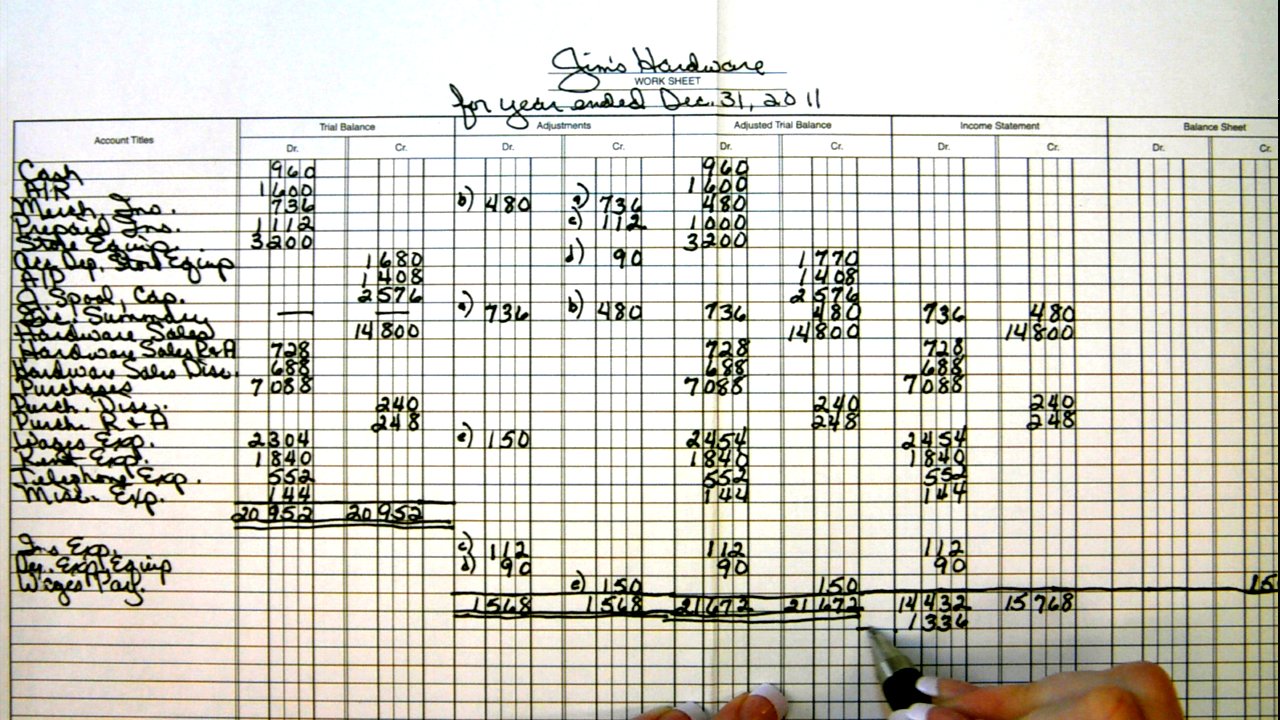 Jim's Hardware
WORK SHEET
for year ended Dec. 31, 2011
Account Titles Trial Balance Adjustments Adjusted Trial Balance Income Statement Balance Sheet
Dr. Cr. Dr. Cr. Dr. Cr. Dr. Cr. Dr. Cr.
Cash 960 960
A/R 1600 1600
Merch. Ins. 736 b) 480 a) 736 480
Prepaid Ins. 1112 c) 112 1000
Store Equip. 3200 3200
Acc. Dep. Store Equip 1680 d) 90 1770
A/P 1408 1408
Spool, Cap. 2576 2576
Summary — — a) 736 b) 480 736 480 736 480
Hardware Sales 14800 14800 14800
Hardware Sales R&A 728 728 728
Hardware Sales Disc. 688 688 688
Purchases 7088 7088 7088
Purch. Disc. 240 240 240
Purch. R & A 248 248 248
Wages Exp. 2304 e) 150 2454 2454
Rent Exp. 1840 1840 1840
Telephone Exp. 552 552 552
Misc. Exp. 144 144 144
20952 20952
Ins Exp. c) 112 112 112
Dep. Exp. Equip d) 90 90 90
Wages Pay. e) 150 150 15
1568 1568 21672 21672 14432 15768
1336